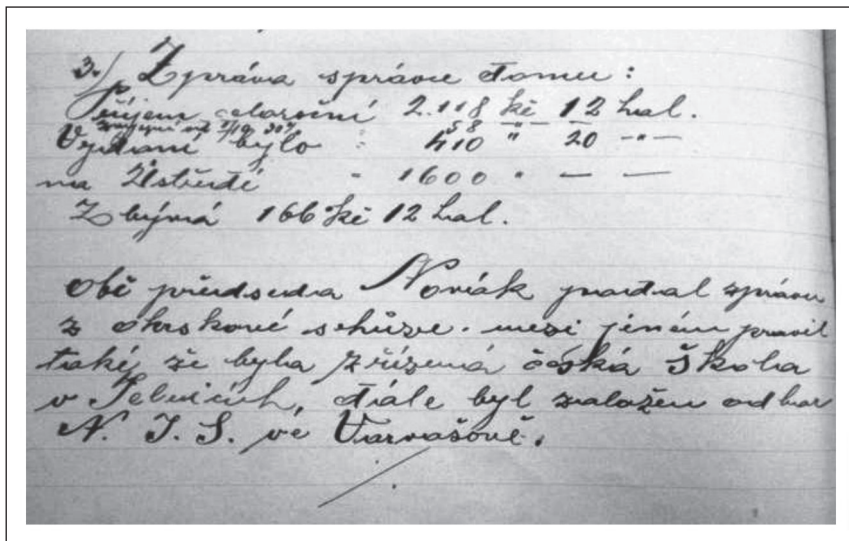 3.) Zpráva správce domu:
Příjem celoroční 2.118 kč 12 hal.
Vydaní bylo : 410 " 20 -"-
na Ústředí - 1600 " — —
Zbývá 166 kč 12 hal.
obě předseda Novák podal zprávu
z okrskové schůze. mezi jiném pravil
také, že byla zřízená česká škola
v Jelvicích, dále byl založen odbor
N. J. S. ve Varvašově.